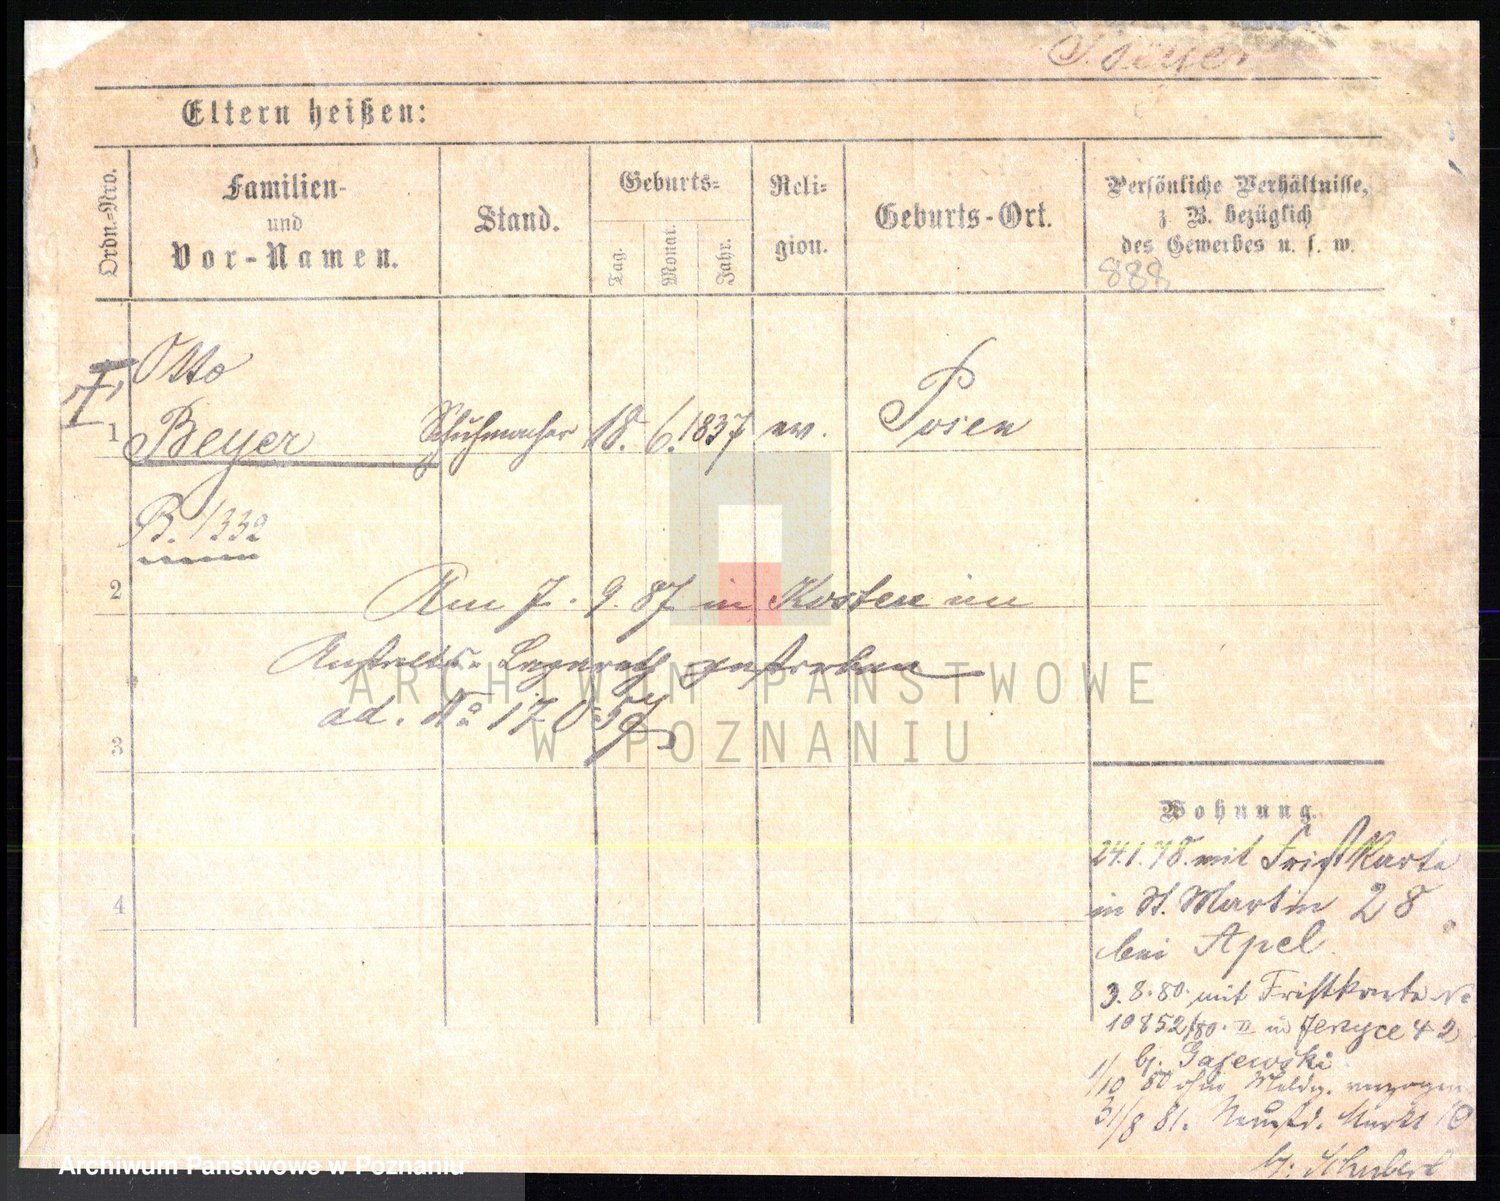 Beyer
Eltern heißen:
Ordn.-Nro.
Familien-
und
Vor-Namen.
Stand.
Geburts-
Tag.
Monat.
Jahr.
Reli-
gion.
Geburts-Ort.
Persönliche Verhältnisse,
z. B. bezüglich
des Gewerbes u. s. w.
888
Otto
1 Beyer Schuhmacher 18. 6. 1837 ev. Posen
B. 1332
2
Am 7. 9. 87 in Kosten im
Anstalts-Lazareth gestorben
ad. No 17057
3
4
Wohnung.
24.1.78. mit Frist Karte
in St. Martin 28
bei Apel.
3. 8. 80. mit Fristkarte No
10852/80. II in Jerzyce 42
bj. Gajewski
1/10 80 ohne Meldg. verzogen
31/8 81. Neust. Markt 10
bj. Schubert
ARCHIWUM PAŃSTWOWE
W POZNANIU
Archiwum Państwowe w Poznaniu